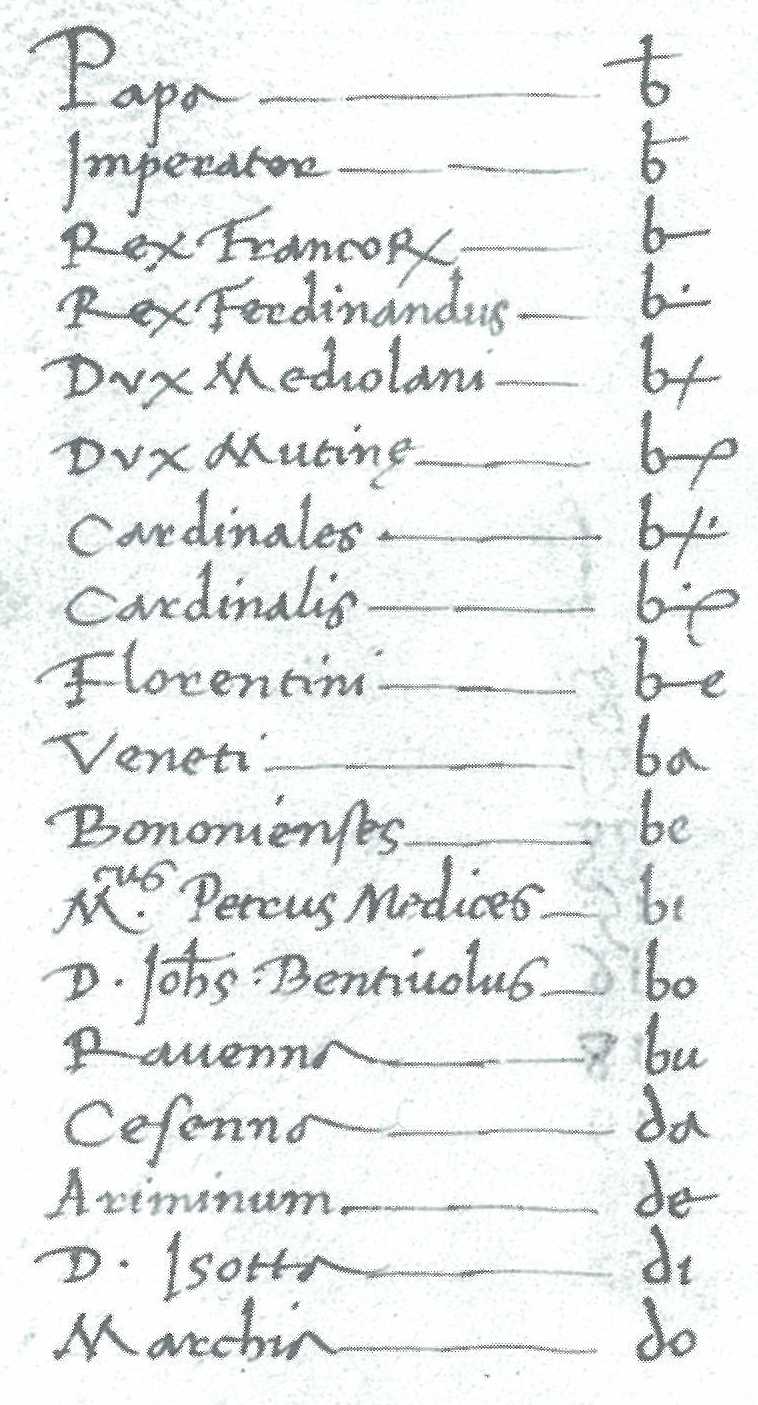 Papa
Imperator
Rex Francoꝝ
Rex Ferdinandus
Dvx Mediolani
Dvx Mutinę
Cardinales
Cardinalis
Florentini
Veneti ba
Bononienſes be
M.cus Petrus Medices bı
D. Joh̄s Bentiuolus bo
Rauenna bu
Ceſenna da
Ariminum de
D. Isotta dı
Marchia do